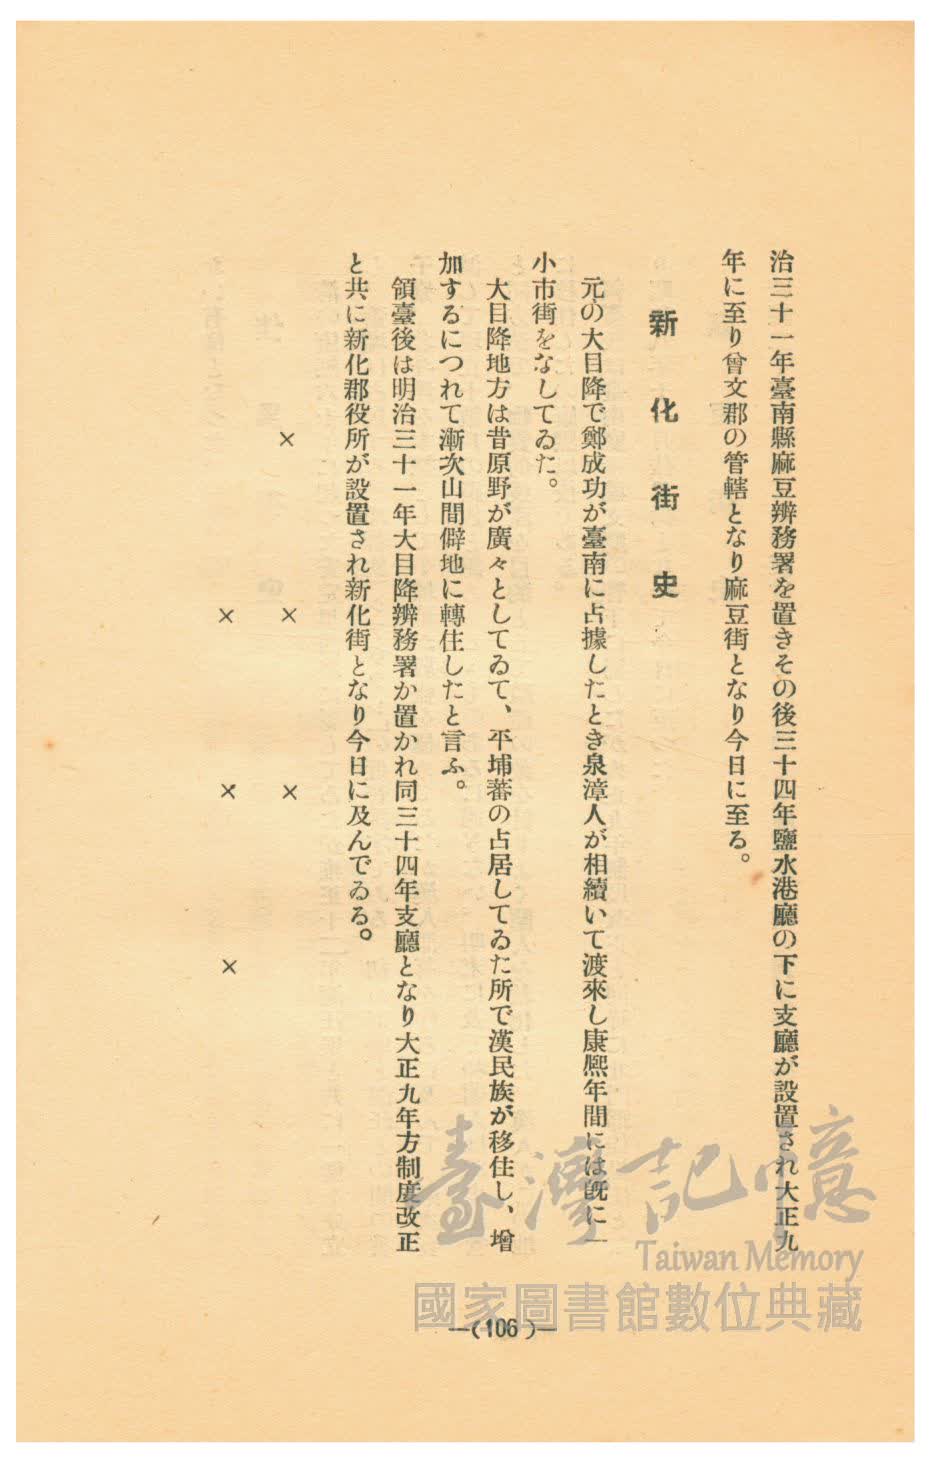 治三十一年臺南縣麻豆辨務署を置きその後三十四年鹽水港廳の下に支廳が設置され大正九
年に至り曾文郡の管轄となり麻豆街となり今日に至る。
新化街史
元の大目降で鄭成功が臺南に占據したとき泉漳人が相續いて渡來し康熙年間には既に一
小市街をなしてゐた。
大目降地方は昔原野が廣々としてゐて、平埔蕃の占居してゐた所で漢民族が移住し、增
加するにつれて漸次山間僻地に轉住したと言ふ。
領臺後は明治三十一年大目降辨務署か置かれ同三十四年支廳となり大正九年方制度改正
と共に新化郡役所が設置され新化街となり今日に及んでゐる。
× × ×
× × ×
—(106)—
臺灣記憶
Taiwan Memory
國家圖書館數位典藏